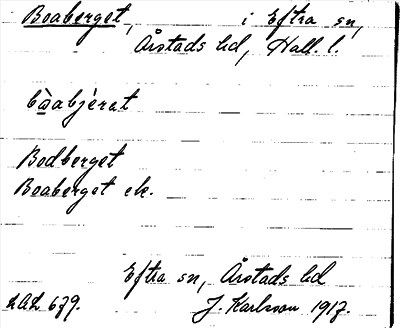 Boaberget, i Eftra sn,
Årstads hd, Hall. l.
bòabjèrat
Bodberget
Boaberget ek.
Eftra sn, Årstads hd
LAL 679. J. Karlsson 1917.